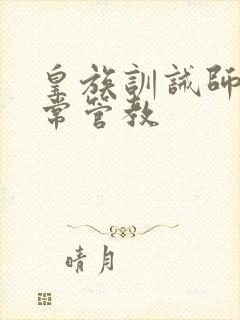 皇族訓誡師
常管教
晴月